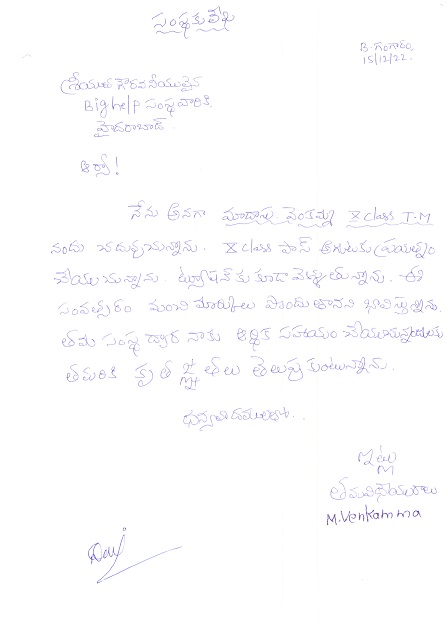 సంస్థకు లేఖ
B. గంగారం,
15/12/22.
శ్రీయుత గౌరవనీయులైన
Bighelp సంస్థవారికి
హైదరాబాద్.
ఆర్యా!
నేను అనగా మాదాసు వెంకమ్మ X class T.M
నందు చదువుచున్నాను. X class పాస్ అగుటకు ప్రయత్నం
చేయుచున్నాను. ట్యూషన్ కు కూడా వెళ్ళుతున్నాను. ఈ
సంవత్సరం మంచి మార్కులు పొందుతానని భావిస్తున్నాను.
తమ సంస్థ ద్వార నాకు ఆర్థిక సహాయం చేయుచున్నందుకు
తమరికి కృతజ్ఞతలు తెలుపుకుంటున్నాను.
ధన్యవాదములతో..
ఇట్లు
తమ విధేయురాలు
M.Venkamma